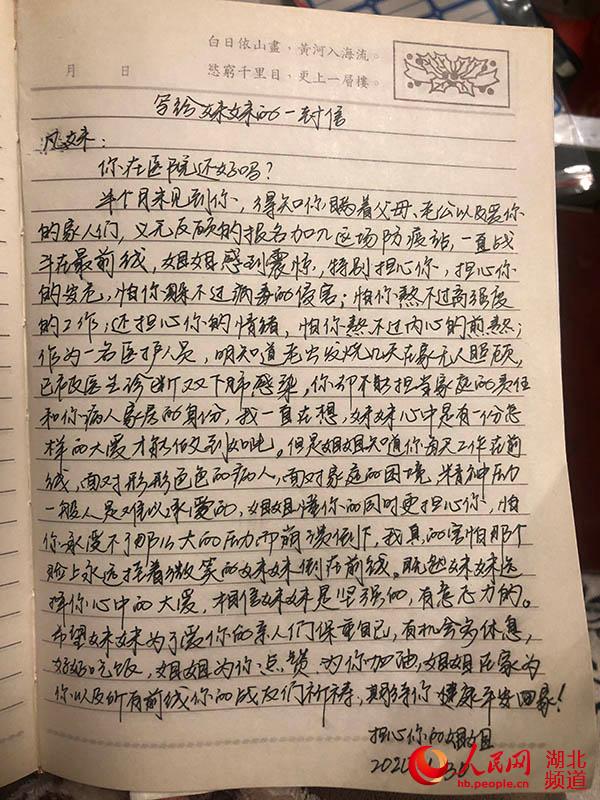 白日依山盡，黃河入海流。
月 日
慾窮千里目，更上一層樓。
写给妹妹的一封信
风妹：
你在医院还好吗？
半个月未见到你，得知你瞒着父母、老公以及爱你
的家人们，义无反顾的报名加入这场防疫站，一直战
斗在最前线，姐姐感到震惊，特别担心你，担心你
的安危，怕你熬不过病毒的侵害；怕你熬不过高强度
的工作；还担心你的情绪，怕你熬不过内心的煎熬；
作为一名医护人员，明知道老公发烧几天在家无人照顾，
已被医生诊断双下肺感染，你却不能担当家庭的责任
和你病人家属的身份，我一直在想，妹妹心中是有一份怎
样的大爱才能做到如此。但是姐姐知道你每天工作在前
线，面对形形色色的病人，面对家庭的困境，精神压力
一般人是难以承受的，姐姐懂你的同时更担心你，怕
你承受不了那么大的压力而崩溃倒下，我真的害怕那个
脸上永远挂着微笑的妹妹倒在前线。既然妹妹选
择你心中的大爱，相信妹妹是坚强的，有意志力的。
希望妹妹为了爱你的亲人们保重自己，有机会多休息，
好好吃饭，姐姐为你点赞 为你加油，姐姐在家为
你以及所有前线你的战友们祈祷，期待你健康平安回家！
担心你的姐姐
人民网 湖北
频道
hb.people.cn